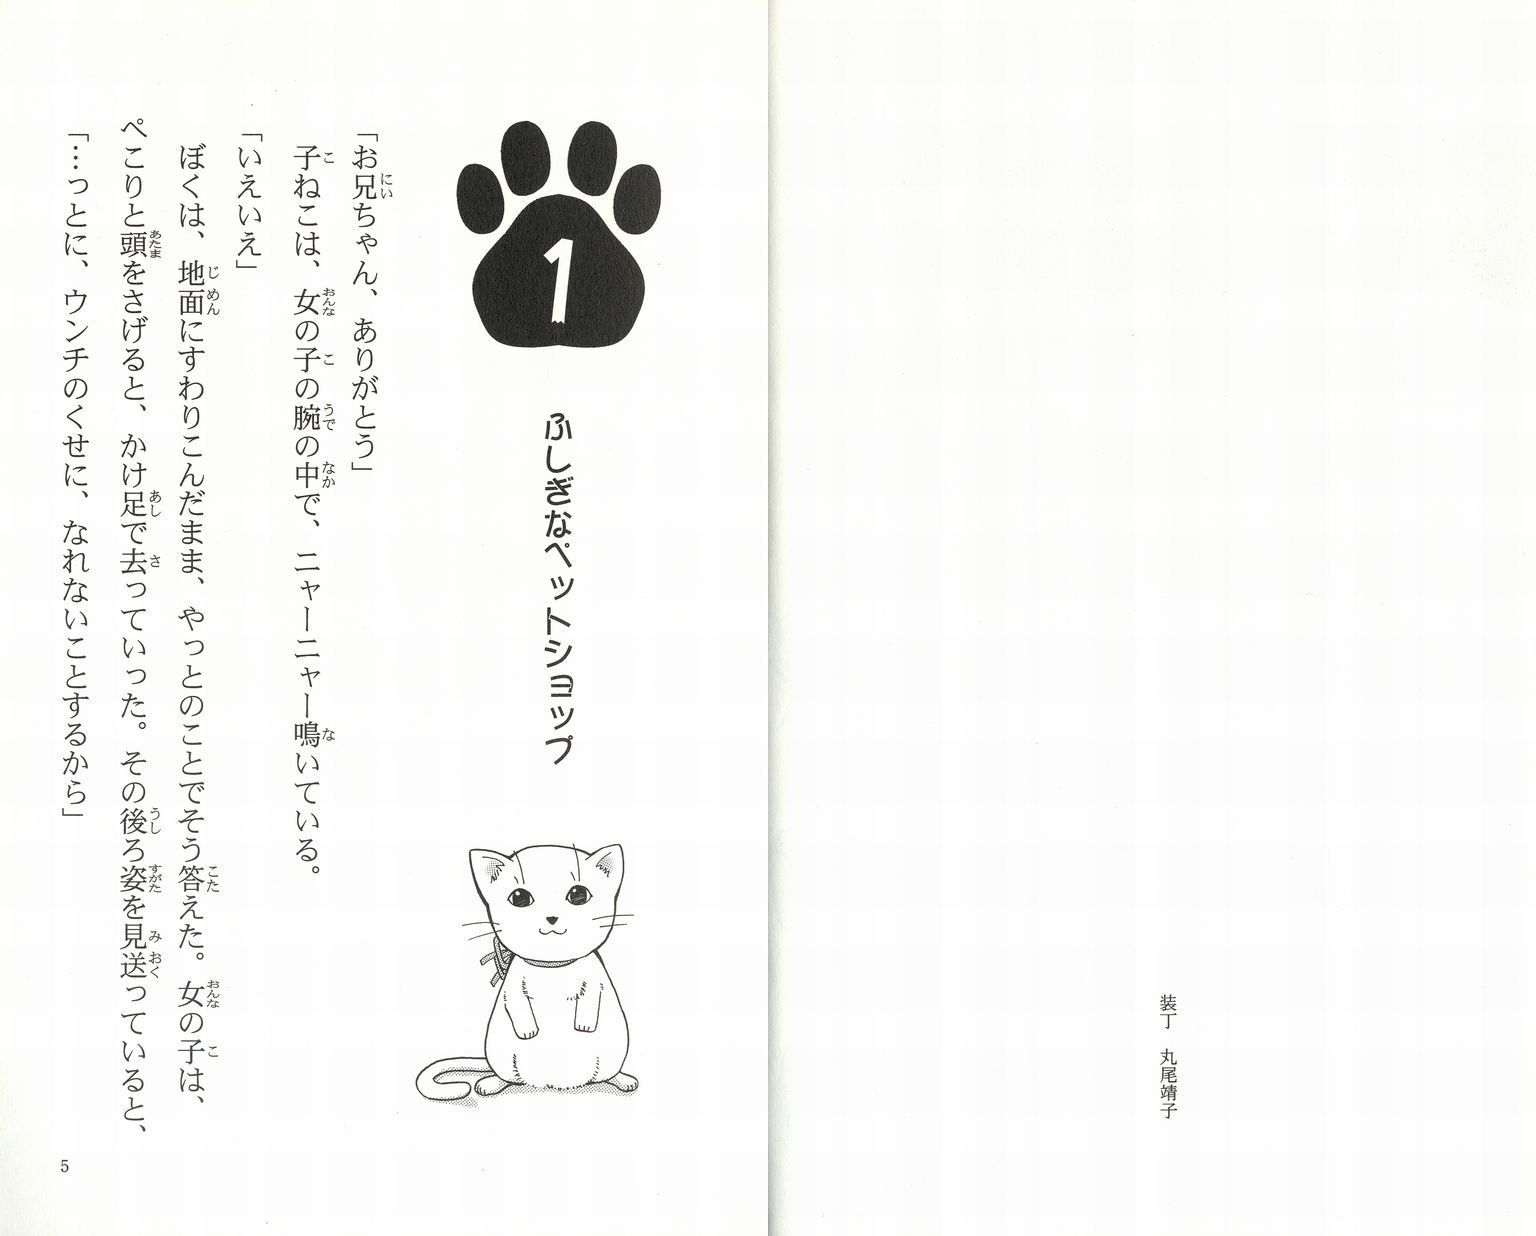 装丁　丸尾靖子
1
ふしぎなペットショップ
「お兄ちゃん、ありがとう」
子ねこは、女の子の腕の中で、ニャーニャー鳴いている。
「いえいえ」
ぼくは、地面にすわりこんだまま、やっとのことでそう答えた。女の子は、
ぺこりと頭をさげると、かけ足で去っていった。その後ろ姿を見送っていると、
「…っとに、ウンチのくせに、なれないことするから」
5